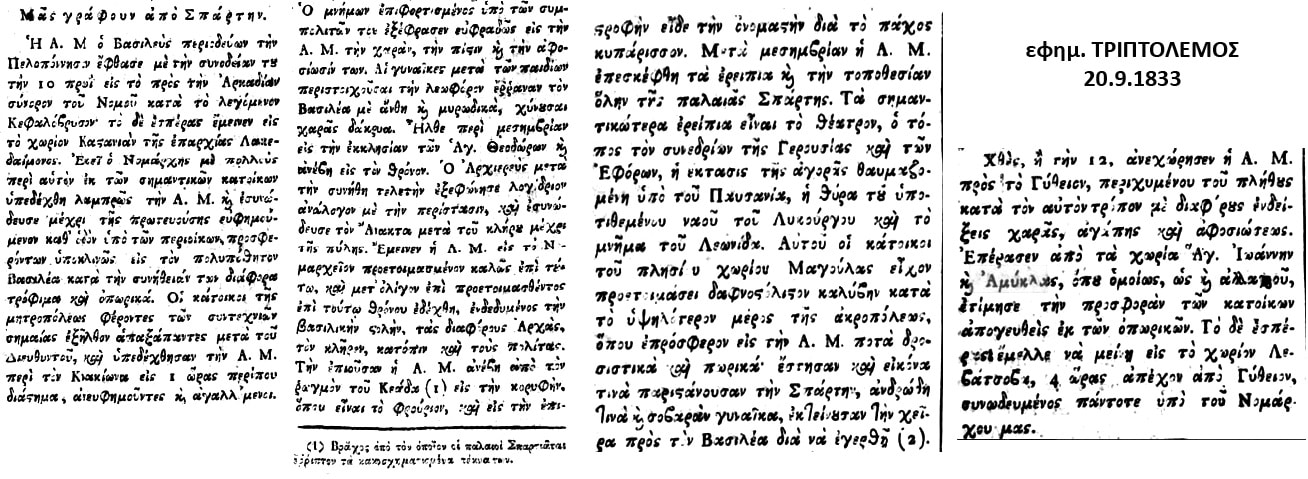 Μᾶς γράφουν ἀπὸ Σπάρτην.
Ἡ Α. Μ ὁ Βασιλεὺς περιοδεύων τὴν
Πελοπόννησον ἔφθασε μὲ τὴν συνοδείαν τȣ
τὴν 10 πρωῒ εἰς τὸ πρὸς τὴν Ἀρκαδίαν
σύνορον τοῦ Νομοῦ κατὰ τὸ λεγόμενον
Κεφαλόβρυσον· τὸ δὲ ἑσπέρας ἔμεινεν εἰς
τὸ χωρίον Κατανιὰν τῆς ἐπαρχίας Λακε-
δαίμονος. Ἐκεῖ ὁ Νομάρχης μὲ πολλοὺς
περὶ αὐτὸν ἐκ τῶν σημαντικῶν κατοίκων
ὑπεδέχθη λαμπρῶς τὴν Α. Μ. ϗ ἐσυνώ-
δευσε μέχρι τῆς πρωτευούσης εὐφημού-
μενον καθ' ὁδὸν ὑπὸ τῶν περιοίκων, προσφε-
ρόντων ὑποκλινῶς εἰς τὸν πολυπόθητον
Βασιλέα κατὰ τὴν συνήθειάν των διάφορα
τρόφιμα ϗ ὀπωρικά. Οἱ κάτοικοι τῆς
μητροπόλεως φέροντες τῶν συντεχνιῶν
σημαίας ἐξῆλθον ἁπαξάπαντες μετὰ τοῦ
Διευθυντοῦ, ϗ ὑπεδέχθησαν τὴν Α. Μ.
περὶ τὸν Κνακίωνα εἰς 1 ὥρας περίπου
διάστημα, ἀνευφημοῦντες ϗ ἀγαλλόμενοι.
Ὁ μνήμων ἐπιφορτισμένος ὑπὸ τῶν συμ-
πολιτῶν του ἐξέφρασεν εὐφραδῶς εἰς τὴν
Α. Μ. τὴν χαράν, τὴν πίστιν ϗ τὴν ἀφο-
σίωσίν των. Αἱ γυναῖκες μετὰ τῶν παιδίων
περιστοιχοῦσαι τὴν λεωφόρον ἔρραναν τὸν
Βασιλέα μὲ ἄνθη ϗ μυρωδικά, χύνουσαι
χαρᾶς δάκρυα. Ἦλθε περὶ μεσημβρίαν
εἰς τὴν ἐκκλησίαν τῶν Ἁγ. Θεοδώρων ϗ
ἀνέβη εἰς τὸν θρόνον. Ὁ Ἀρχιερεὺς μετὰ
τὴν συνήθη τελετὴν ἐξεφώνησε λογύδριον
ἀνάλογον μὲ τὴν περίστασιν, ϗ ἐσυνώ-
δευσε τὸν Ἄνακτα μετὰ τοῦ κλήρου μέχρι
τῆς πύλης. Ἔμεινεν ἡ Α. Μ. εἰς τὸ Νο-
μαρχεῖον προετοιμασμένον καλῶς ἐπὶ τέ-
τω, ϗ μετ' ὀλίγον ἐπὶ προετοιμασθέντος
ἐπὶ τούτω θρόνου ἐδέχθη, ἐνδεδυμένος τὴν
βασιλικὴν στολήν, τὰς διαφόρους Ἀρχάς,
τὸν κλῆρον, κατόπιν ϗ τοὺς πολίτας.
Τὴν ἐπιοῦσαν ἡ Α. Μ. ἀνέβη ἀπὸ τὸν
φραγμὸν τοῦ Κεάδα (1) εἰς τὴν κορυφήν,
ὅπου εἶναι τὸ Φρούριον, ϗ εἰς τὴν ἐπι-
(1) Βράχος ἀπὸ τὸν ὁποῖον οἱ παλαιοὶ Σπαρτιᾶται
ἔρριπτον τὰ κακοσχηματισμένα τέκνα των.
στροφὴν εἶδε τὴν ὀνομαστὴν διὰ τὸ πάχος
κυπάρισσον. Μετὰ μεσημβρίαν ἡ Α. Μ.
ἐπεσκέφθη τὰ ἐρείπια ϗ τὴν τοποθεσίαν
ὅλην τῆς παλαιᾶς Σπάρτης. Τὰ σημαν-
τικώτερα ἐρείπια εἶναι τὸ θέατρον, ὁ τό-
πος τῶν συνεδρίων τῆς Γερουσίας ϗ τῶν
Ἐφόρων, ἡ ἔκτασις τῆς ἀγορᾶς θαυμαζο-
μένη ὑπὸ τοῦ Παυσανία, ἡ θύρα τȣ ὑπο-
τιθεμένου ναοῦ τοῦ Λυκούργου ϗ τὸ
μνῆμα τοῦ Λεωνίδα. Αὐτοῦ οἱ κάτοικοι
τοῦ πλησίον χωρίου Μαγούλας εἶχον
προετοιμάσει δαφνοστόλιστον καλύβην κατὰ
τὸ ὑψηλότερον μέρος τῆς ἀκροπόλεως,
ὅπου ἐπρόσφερον εἰς τὴν Α. Μ. ποτὰ δρο-
σιστικὰ ϗ πωρικά· ἔστησαν ϗ εἰκόνα
τινὰ παριστάνουσαν τὴν Σπάρτην, ἀνδρώδη
τινὰ ϗ σοβαρὰν γυναῖκα, ἐκτείνουσαν τὴν χεῖ-
ρα πρὸς τὸν Βασιλέα διὰ νὰ ἐγερθῇ (2).
εφημ. ΤΡΙΠΤΟΛΕΜΟΣ
20.9.1833
Χθές, ἢ τὴν 12, ἀνεχώρησεν ἡ Α. Μ.
πρὸς τὸ Γύθειον, περιχυμένου τοῦ πλήθȣς
κατὰ τὸν αὐτὸν τρόπον μὲ διαφόρους ἐνδεί-
ξεις χαρᾶς, ἀγάπης ϗ ἀφοσιώσεως.
Ἐπέρασεν ἀπὸ τὰ χωρία Ἅγ. Ἰωάννην
ϗ Ἀμύκλας, ὅπȣ ὁμοίως, ὡς ϗ ἀλλαχοῦ,
ἐτίμησε τὴν προσφορὰν τῶν κατοίκων
ἀπογευθεὶς ἐκ τῶν ὀπωρικῶν. Τὸ δὲ ἑσπέ-
ρας ἔμελλε νὰ μείνῃ εἰς τὸ χωρίον Λε-
βέτσοβα, 4 ὥρας ἀπέχον ἀπὸ Γύθειον,
συνωδευμένος πάντοτε ὑπὸ τοῦ Νομάρ-
χου μας.